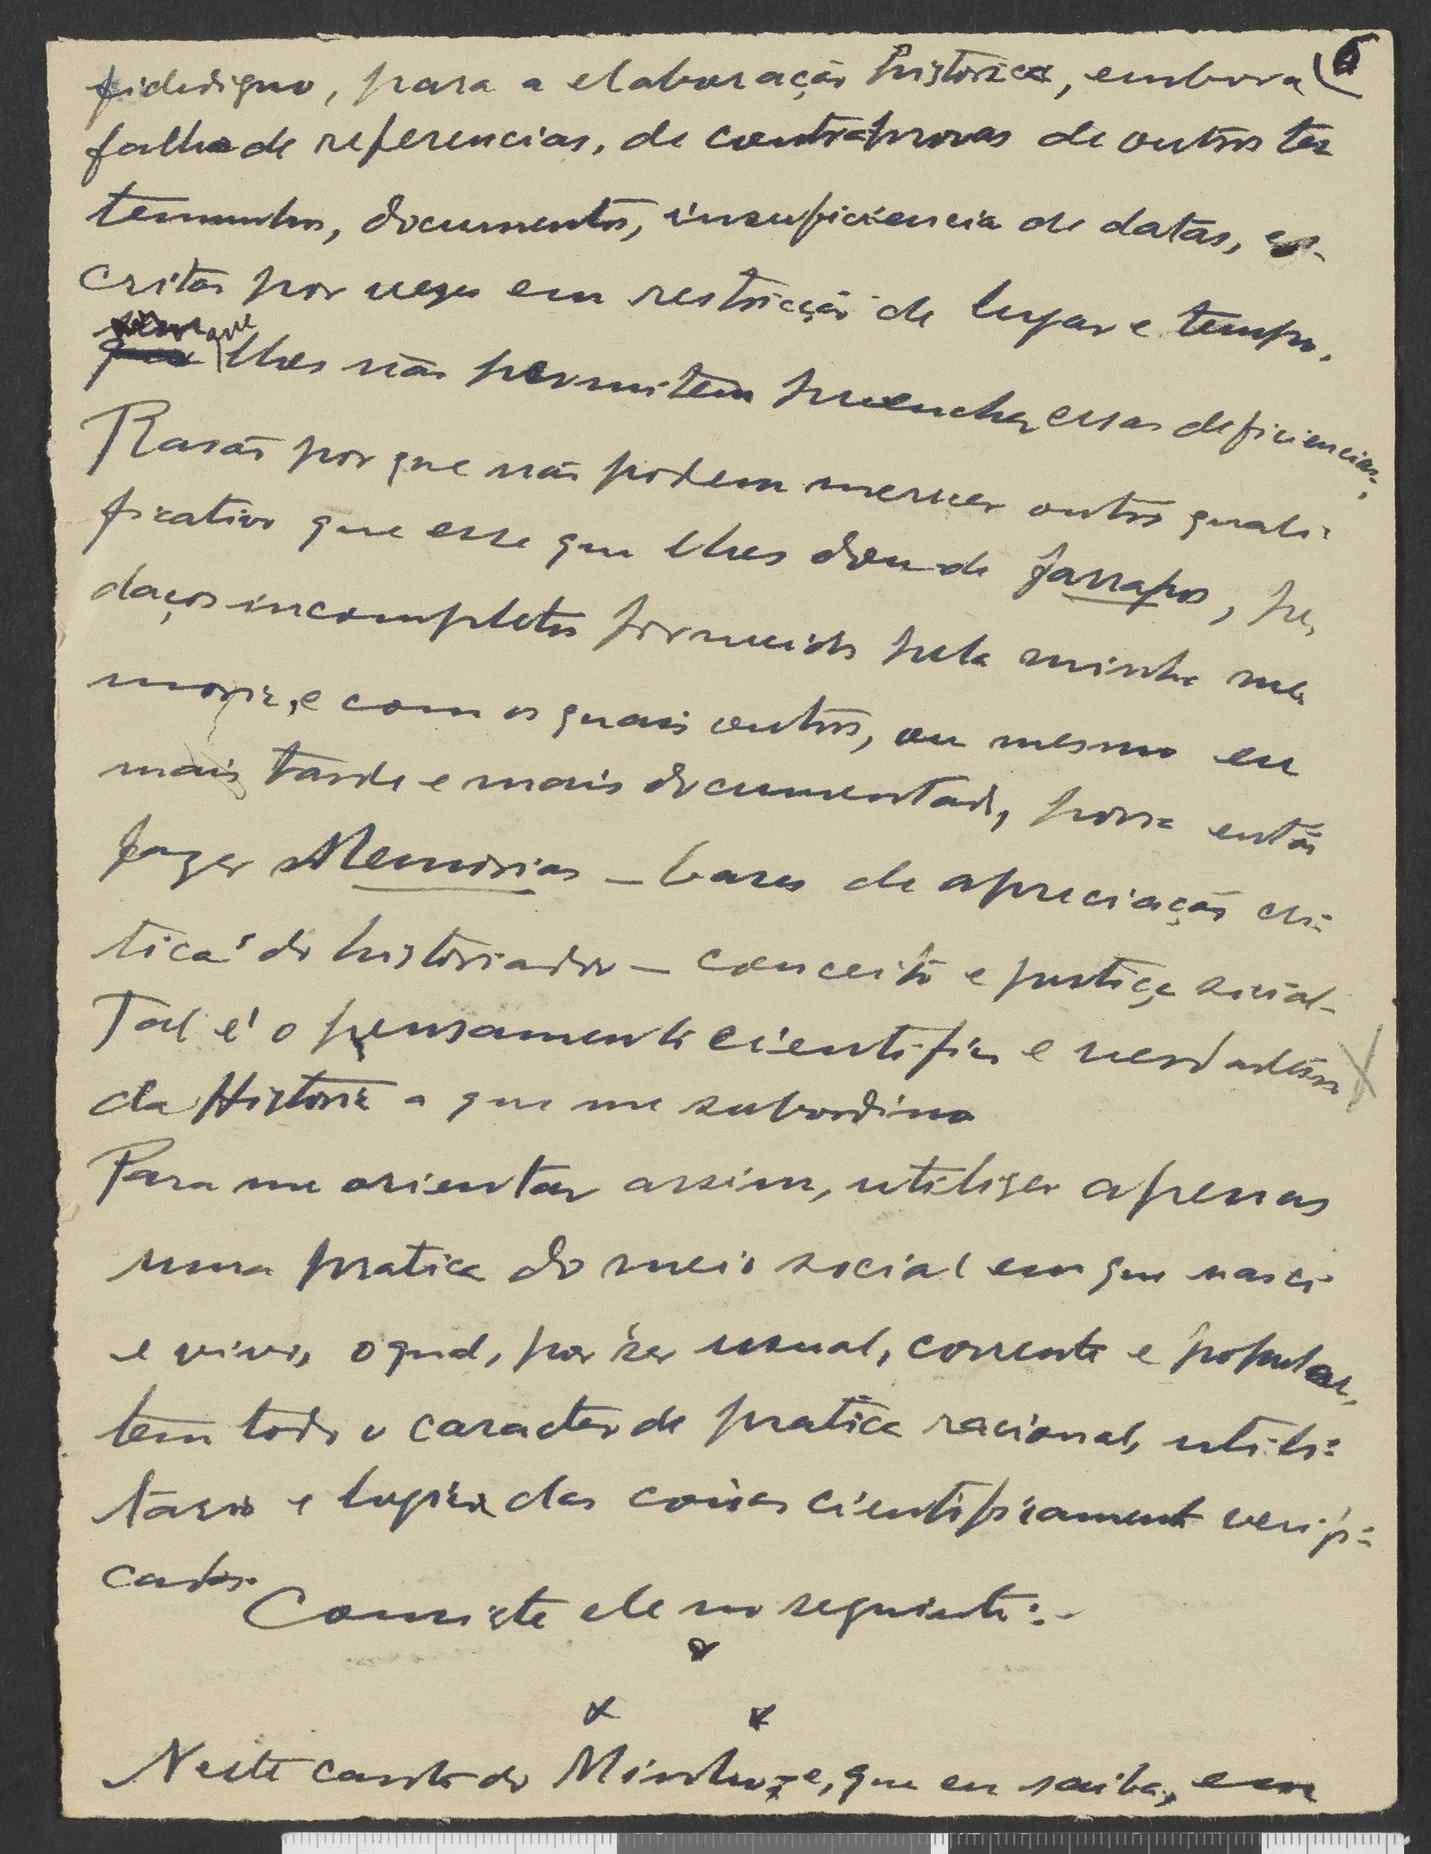 6
fidedigno, para a elaboração historica, embora
falha de referencias, de contraprovas de outros tes
temunhos, documentos, insuficiencia de datas, es-
critas por vezes em restricção de lugar e tempo,
que
lhes não permitem preencher essas deficiencias;
Rasão porque não podem merecer outro quali-
ficativo que esse que lhes dou de farrapos, pe-
daços incompletos fornecidos pela minha me
moria, e com os quais outros, ou mesmo eu
mais tarde e mais documentado, possa então
fazer Memorias – bases de apreciação cri-
tica do historiador – conceito e justiça social-
Tal é o pensamento cientifico e verdadeiro
da Historia a que me subordino
Para me orientar assim, utilizei apenas
uma pratica do meio social em que nasci
e vivo, o qual, por ser usual, corrente e popular,
tem todo o caracter de pratica racional, utili-
tario e logica das coisas cientificamente verifi-
cados.
Consiste ele no seguinte:-
x
x x
Neste canto do Minho, e, que eu saiba, em